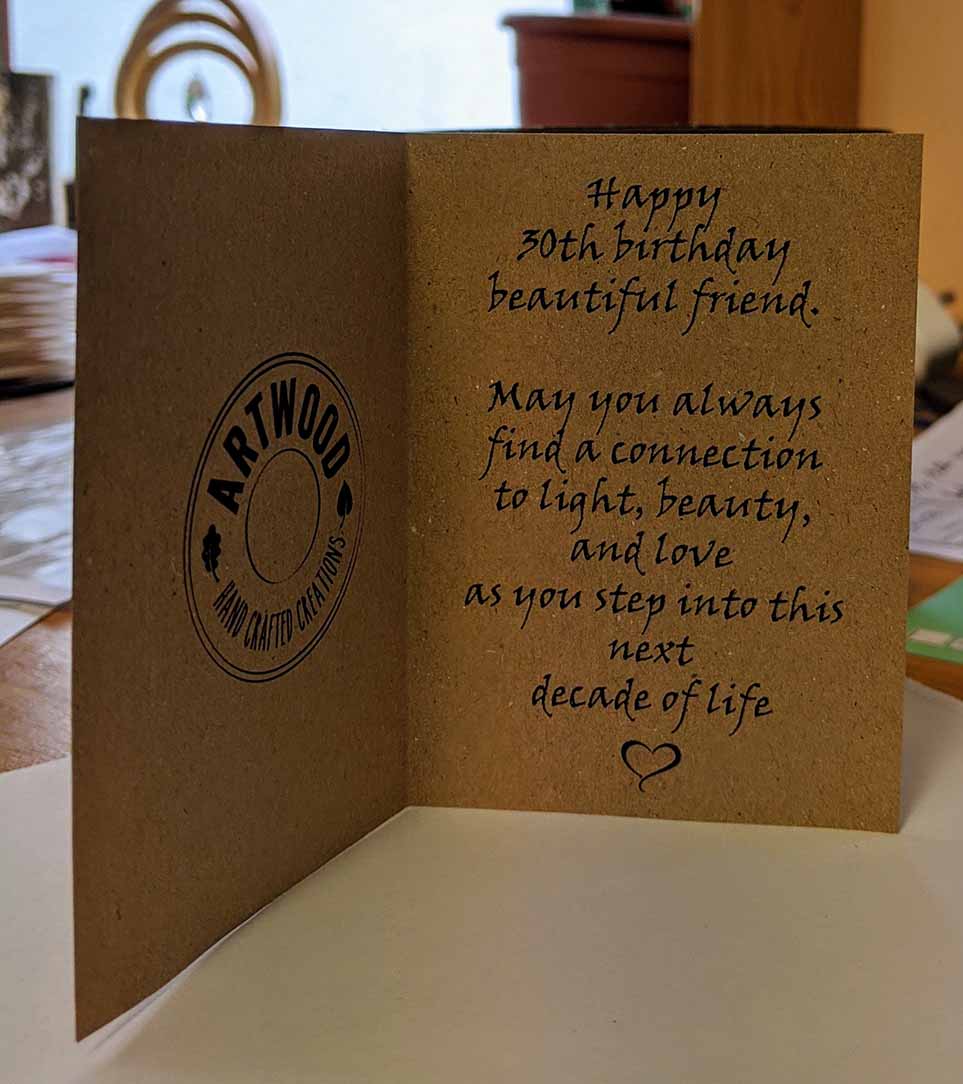 ARTWOOD
HAND CRAFTED CREATIONS
Happy
30th birthday
beautiful friend.
May you always
find a connection
to light, beauty,
and love
as you step into this
next
decade of life